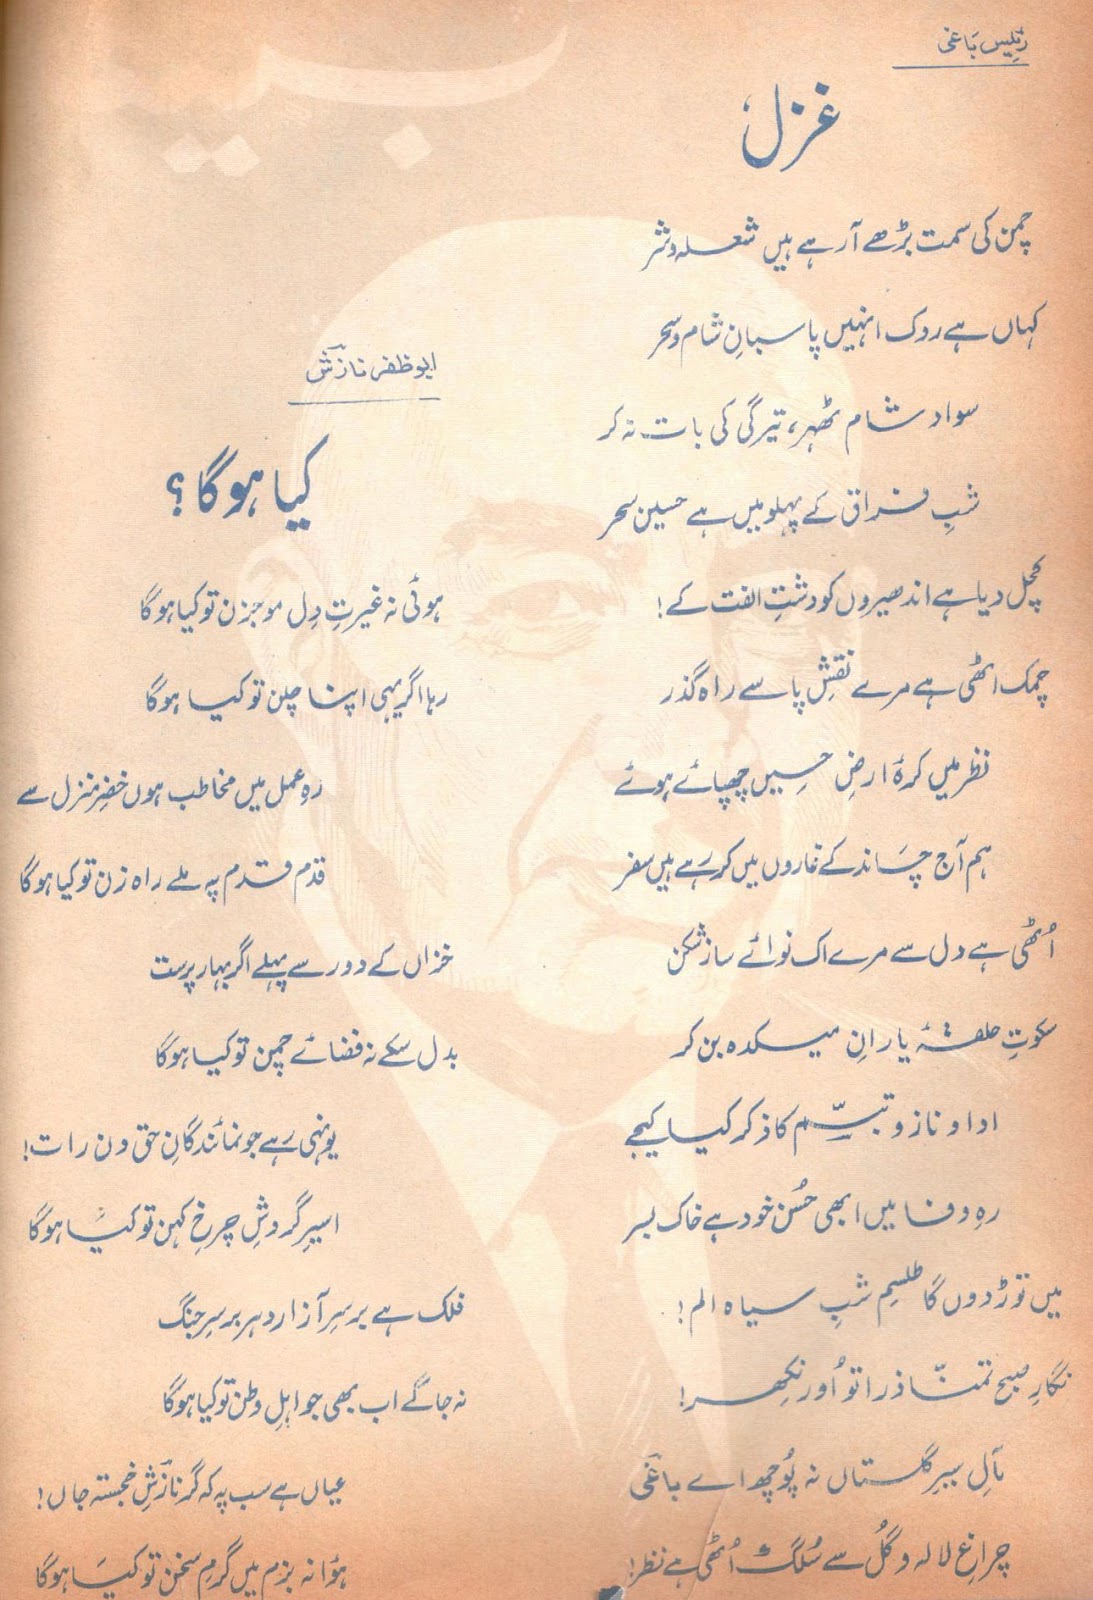 رئیس باغی
غزل
چمن کی سمت بڑھے آرہے ہیں شعلہ و شرر
کہاں ہے روک انہیں پاسبانِ شام و سحر
سوادِ شام ٹھہر، تیرگی کی بات نہ کر
شبِ فراق کے پہلو میں ہے حسین سحر
کچل دیا ہے اندھیروں کو دشتِ الفت کے!
چمک اٹھی ہے مرے نقشِ پا سے راہ گذر
نظر میں کرۂ ارضِ حسیں چھپائے ہوئے
ہم آج چاند کے غاروں میں کر رہے ہیں سفر
اُٹھی ہے دل سے مرے اک نوائے ساز شکن
سکوتِ حلقۂ یارانِ میکدہ بن کر
ادا و ناز و تبسّم کا ذکر کیا کیجے
رہِ وفا میں ابھی حُسن خود ہے خاک بسر
میں توڑ دوں گا طلسمِ شبِ سیاہ الم!
نگارِ صبح تمنّا ذرا تو اُور نکھر!
مآلِ سیرِ گلستاں نہ پُوچھ اے باغی
چراغِ لالہ و گُل سے سُلگ اُٹھی ہے نظر!
ابو ظفر نازش
کیا ہوگا؟
ہوئی نہ غیرتِ دِل موجزن تو کیا ہوگا
رہا اگر یہی اپنا چلن تو کیا ہوگا
رہِ عمل میں مخاطب ہوں خضرِ منزل سے
قدم قدم پہ ملے راہ زن تو کیا ہوگا
خزاں کے دور سے پہلے اگر بہار پرست
بدل سکے نہ فضائے چمن تو کیا ہوگا
یونہی رہے جو نمائندگانِ حق دن رات!
اسیرِ گردشِ چرخِ کہن تو کیا ہوگا
فلک ہے برسرِ آزار دہر برسرِ جنگ
نہ جاگے اب بھی جو اہلِ وطن تو کیا ہوگا
عیاں ہے سب پہ کہ گر نازشِ خجستہ جاں!
ہُوا نہ بزم میں گرمِ سخن تو کیا ہوگا